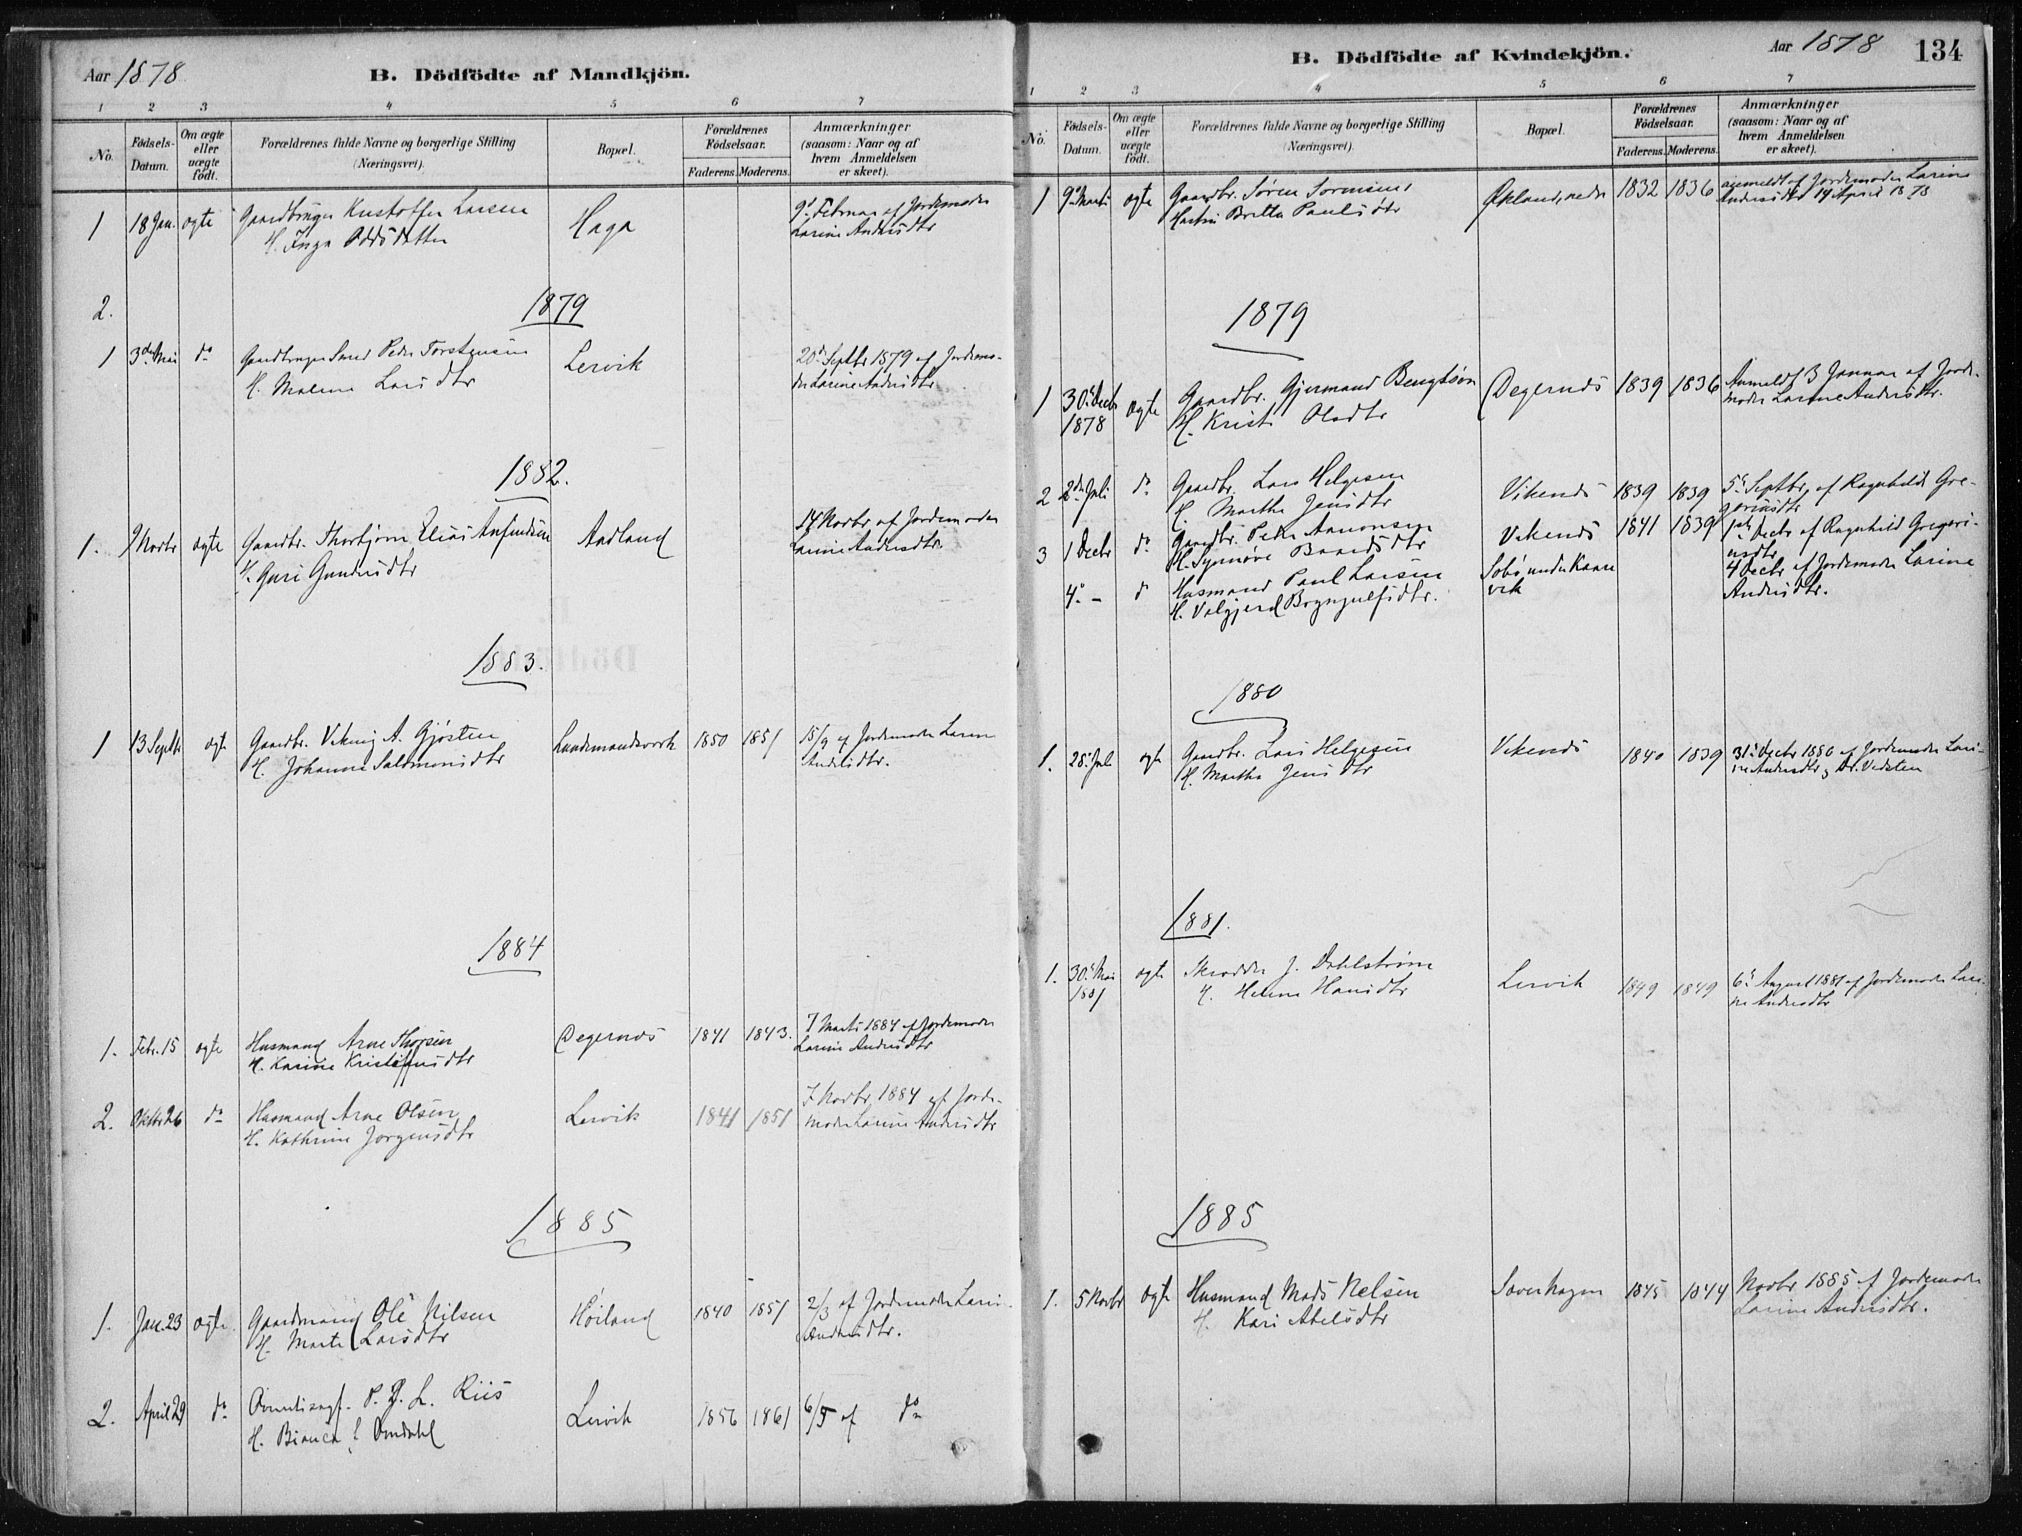 Aar 1878
B. Dödfödte af Mandkjön.
1 2 3 4 5 6 7
No.
Födsels-
Datum.
Om ægte
eller
uægte
født.
Forældrenes fulde Navne og borgerlige Stilling
(Næringsvei).
Bopæl.
Forældrenes
Födselsaar.
Faderens. Moderens.
Anmærkninger
(saasom: Naar og af
hvem Anmeldelsen
er skeet).
1 18 Jan. ægte Gaardbruger Kristoffer Larsen
H. Inga Oddsdatter
Haga
9de Februar af Jordemoder
Larine Andersdtr
2.
1879
1 3die Mai do Peder Torstensen
H. Malene Larsdtr
Lervik
20de Septbr 1879 af Jordemo-
der Larine Andersdtr
1882.
1. 9 Novbr ægte Gaardbr. Thorbjørn Elias Anfindsen
H. Guri Gundersdtr
Aadland
14 Novbr af Jordemoder
Larine Andersdtr.
1883.
1 13 Septbr ægte Gaardbr. Viking A. Gjøsten
H. Johanne Salomonsdtr
Lundemandsverk 1850 1851
15/9 af Jordemoder Larine
Andersdtr.
1884
1. Febr. 15 ægte Husmand Arne Thorsen
H. Karine Kristoffersdtr
Degernæs 1841 1843.
7 Marts 1884 af Jordemoder
Larine Andersdtr
2. Oktbr 26 do Husmand Arne Olsen
H. Kathrine Jørgensdtr
Lervik 1841 1851
7 Novbr 1884 af Jorde-
moder Larine Andersdtr
1885
1. Jan. 23 ægte Gaardmand Ole Nilsen
H. Marte Larsdtr
Høiland 1840 1851
2/3 af Jordemoder Larine
Andersdtr.
2. April 29 do P. D. L. Riis
H. Bianca E Omdahl
Lervik 1856 1861 6/5 af do
Aar 1878 134
B. Dödfödte af Kvindekjön.
1 2 3 4 5 6 7
No.
Födsels-
Datum.
Om ægte
eller
uægte
födt.
Forældrenes fulde Navne og borgerlige Stilling
(Næringsvei).
Bopæl.
Forældrenes
Födselsaar.
Faderens. Moderens.
Anmærkninger
(saasom: Naar og af
hvem Anmeldelsen
er skeet).
1 9de Marts ægte Gaardbr. Søren Sørensen
Hustru Britta Paulsdtr
Økland, nedre 1832 1836
anmeldt af Jordemoder Larine
Andersdtr 14 April 1878
1879
1 30de Decbr
1878
ægte Gaardbr. Gjermand Bengtsøn
H. Kristi Olsdtr
Degernæs 1839 1836
Anmeldt 3 Januar af Jorde-
moder Larine Andersdtr.
2 2den Juli do Gaardbr. Lars Helgesen
H. Marthe Jensdtr
Vikenæs 1839 1839
5te Septbr. af Ragnhild Gre-
goriusdtr
3 1 Decbr do Gaardbr. Peder Aanonsen
H. Synnøve Baardsdtr
Vikenæs 1841 1839
1ste Decbr af Ragnhild Gregori-
usdtr
4de - do Husmand Paul Larsen
H. Valgjerd Brynjulfsdtr.
Sobø under Kaare
vik
4 Decbr af Jordemoder Larine
Andersdtr.
1880
1. 28de Juli ægte Gaardbr. Lars Helgesen
H. Martha Jensdtr
Vikenæs 1840 1839
31te Decbr 1880 af Jordemoder Lari-
ne Andersdtr
1881.
1. 30te Mai
1881
ægte Skrædder J. Dahlstrøm
H. Helene Hansdtr
Lervik 1849 1849
6te August 1881 af Jordemoder Lari-
ne Andersdtr
1885
1. 5 Novbr ægte Husmand Mads Nelsen
H. Kari Abelsdtr
Sævenhagen 1845 1844
Novbr 1885 af Jordemoder
Larine Andersdtr.